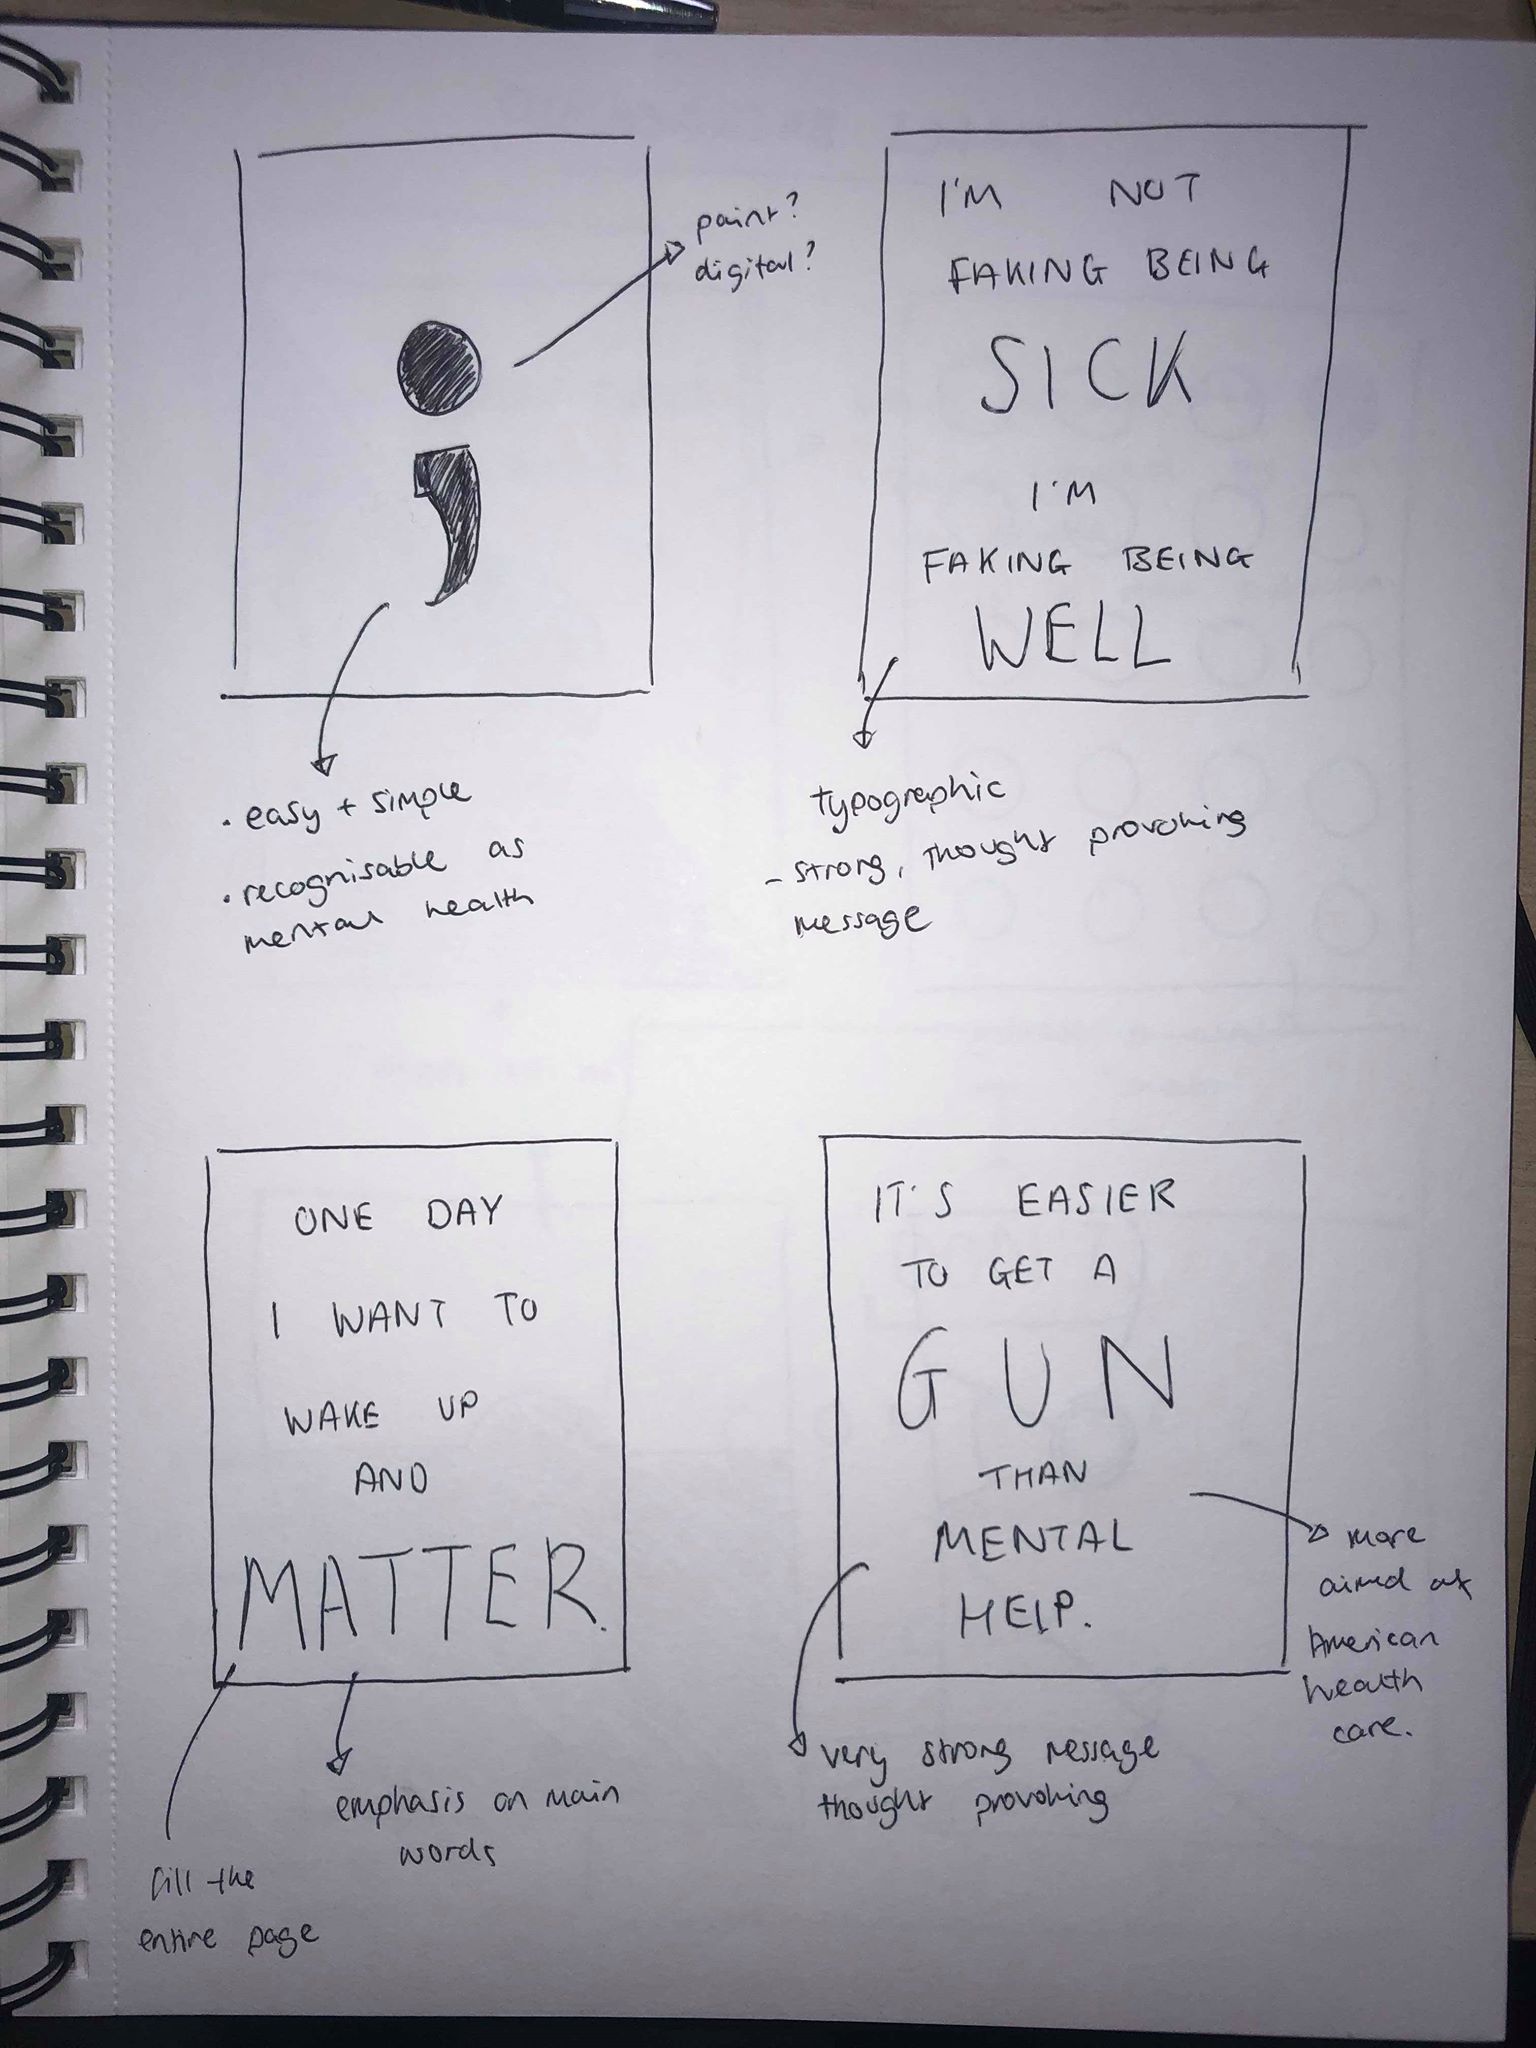 ;
paint?
digital?
• easy + simple
• recognisable as
mental health
I'M NOT
FAKING BEING
SICK
I'M
FAKING BEING
WELL
typographic
- strong, thought provoking
message
ONE DAY
I WANT TO
WAKE UP
AND
MATTER.
emphasis on main
words
fill the
entire page
IT'S EASIER
TO GET A
GUN
THAN
MENTAL
HELP.
more
aimed at
American
health
care.
very strong message
thought provoking